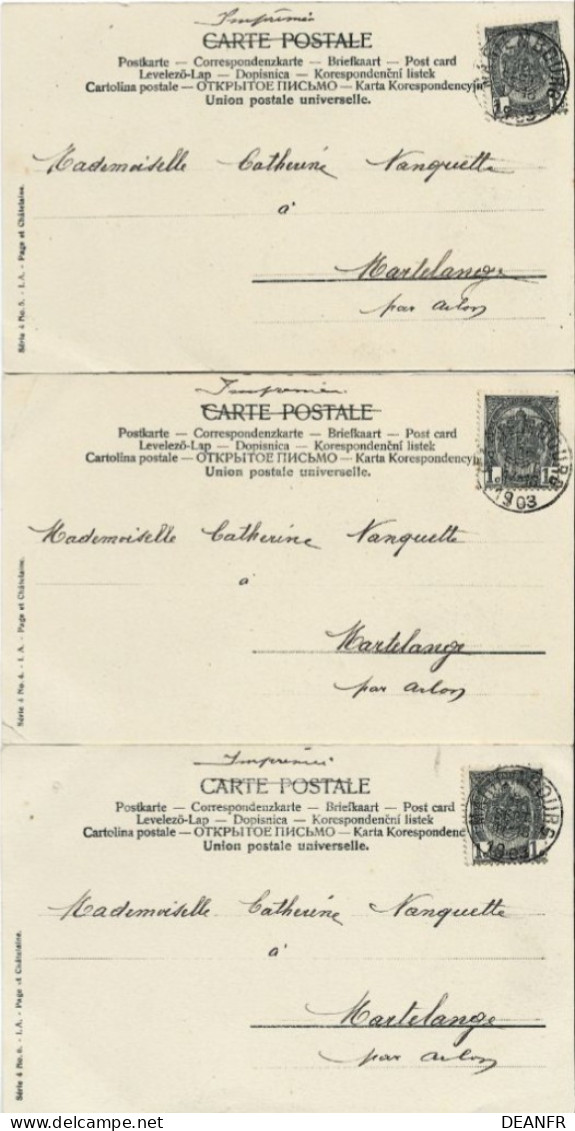 Imprimés
CARTE POSTALE
Postkarte — Correspondenzkarte — Briefkaart — Post card
Levelező-Lap — Dopisnica — Korespondenční listek
Cartolina postale — ОТКРЫТОЕ ПИСЬМО — Karta Korespondencyjn
Union postale universelle.
1903
Mademoiselle Catherine Nanquette
à
Martelange
par Arlon
Série 4 No. 5. - I. A. - Page et Châtelaine.
Imprimés
CARTE POSTALE
Postkarte — Correspondenzkarte — Briefkaart — Post card
Levelező-Lap — Dopisnica — Korespondenční listek
Cartolina postale — ОТКРЫТОЕ ПИСЬМО — Karta Korespondencyjn
Union postale universelle.
1 1
1903
Mademoiselle Catherine Nanquette
à
Martelange
par Arlon
Série 4 No. 4. - I. A. - Page et Châtelaine.
Imprimés
CARTE POSTALE
Postkarte — Correspondenzkarte — Briefkaart — Post card
Levelező-Lap — Dopisnica — Korespondenční listek
Cartolina postale — ОТКРЫТОЕ ПИСЬМО — Karta Korespondenc
Union postale universelle.
1 1
1903
Mademoiselle Catherine Nanquette
à
Martelange
par Arlon
Série 4 No. 6. - I. A. - Page et Châtelaine.
delcampe.net
DEANFR